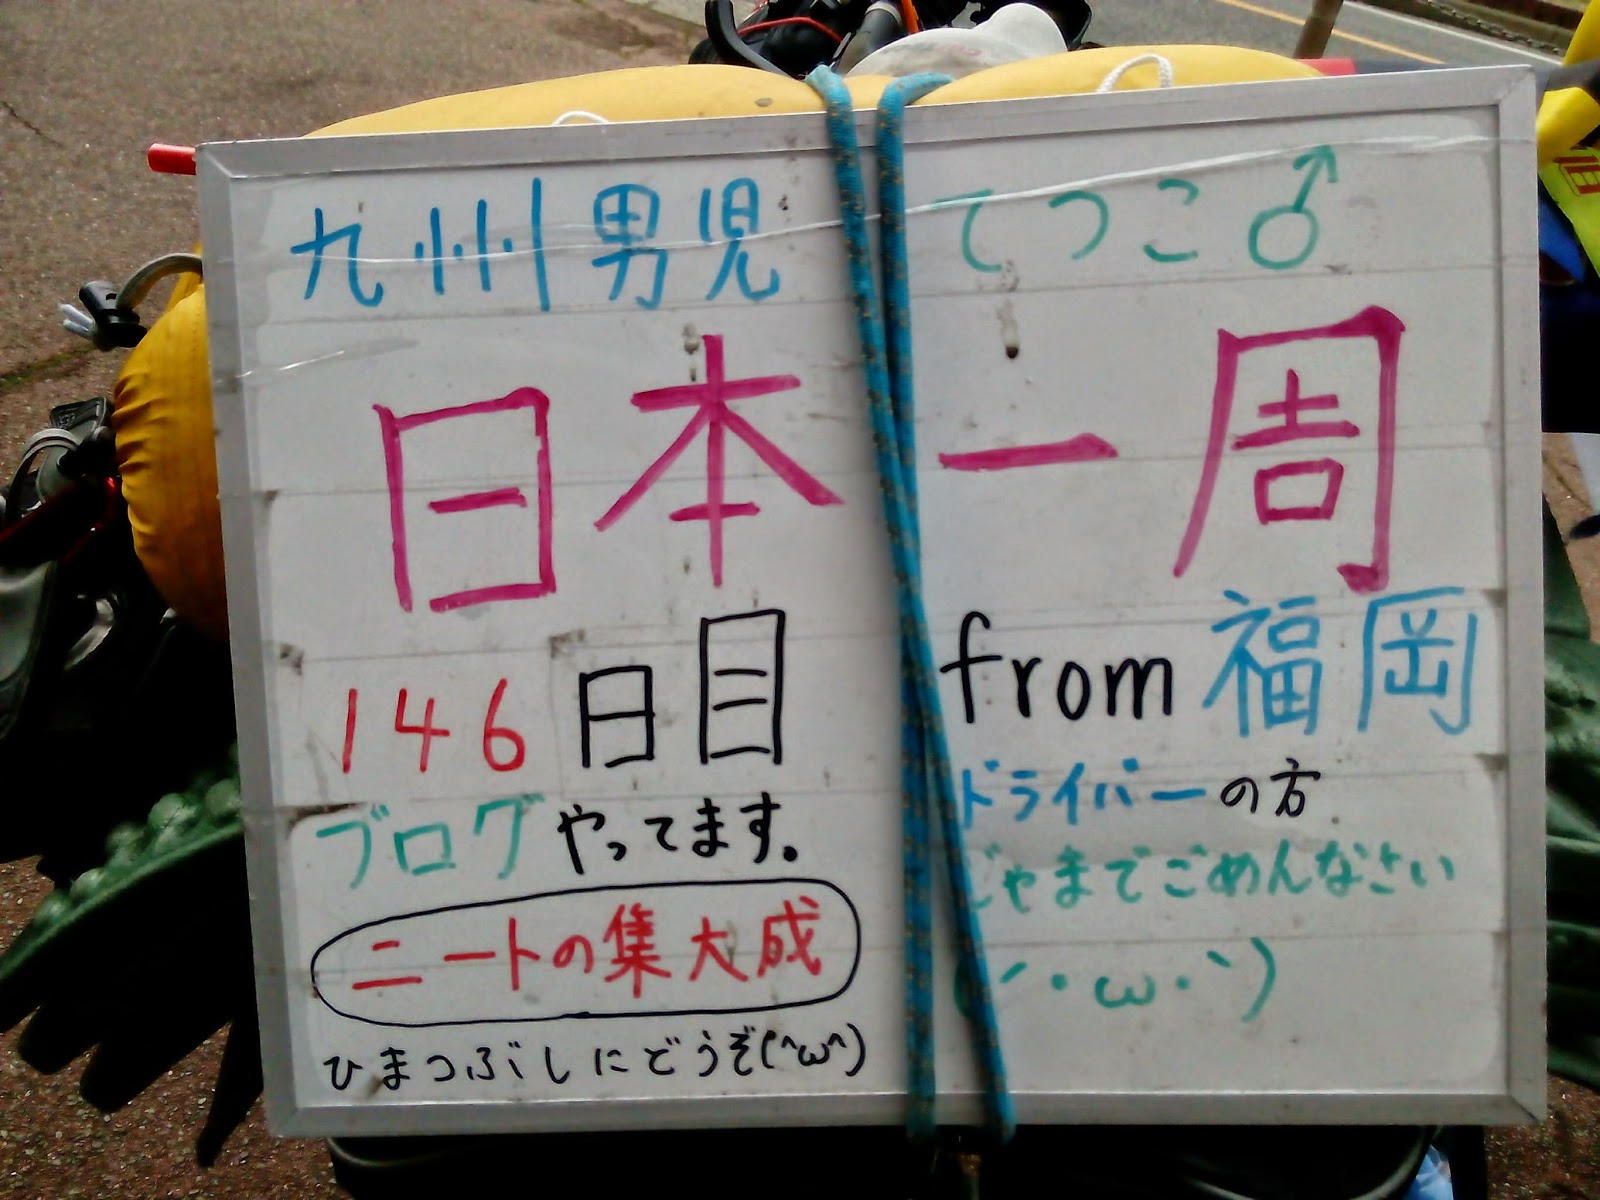 九州男児 てつこ♂
日本一周
146日目 from福岡
ブログやってます。
ニートの集大成
ひまつぶしにどうぞ(^ω^)
ドライバーの方
じゃまでごめんなさい
(´・ω・`)